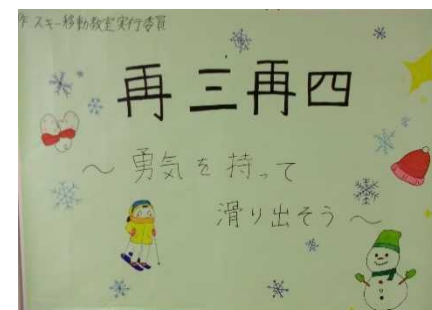 作 スキー移動教室実行委員
再三再四
～勇気を持って
滑り出そう～